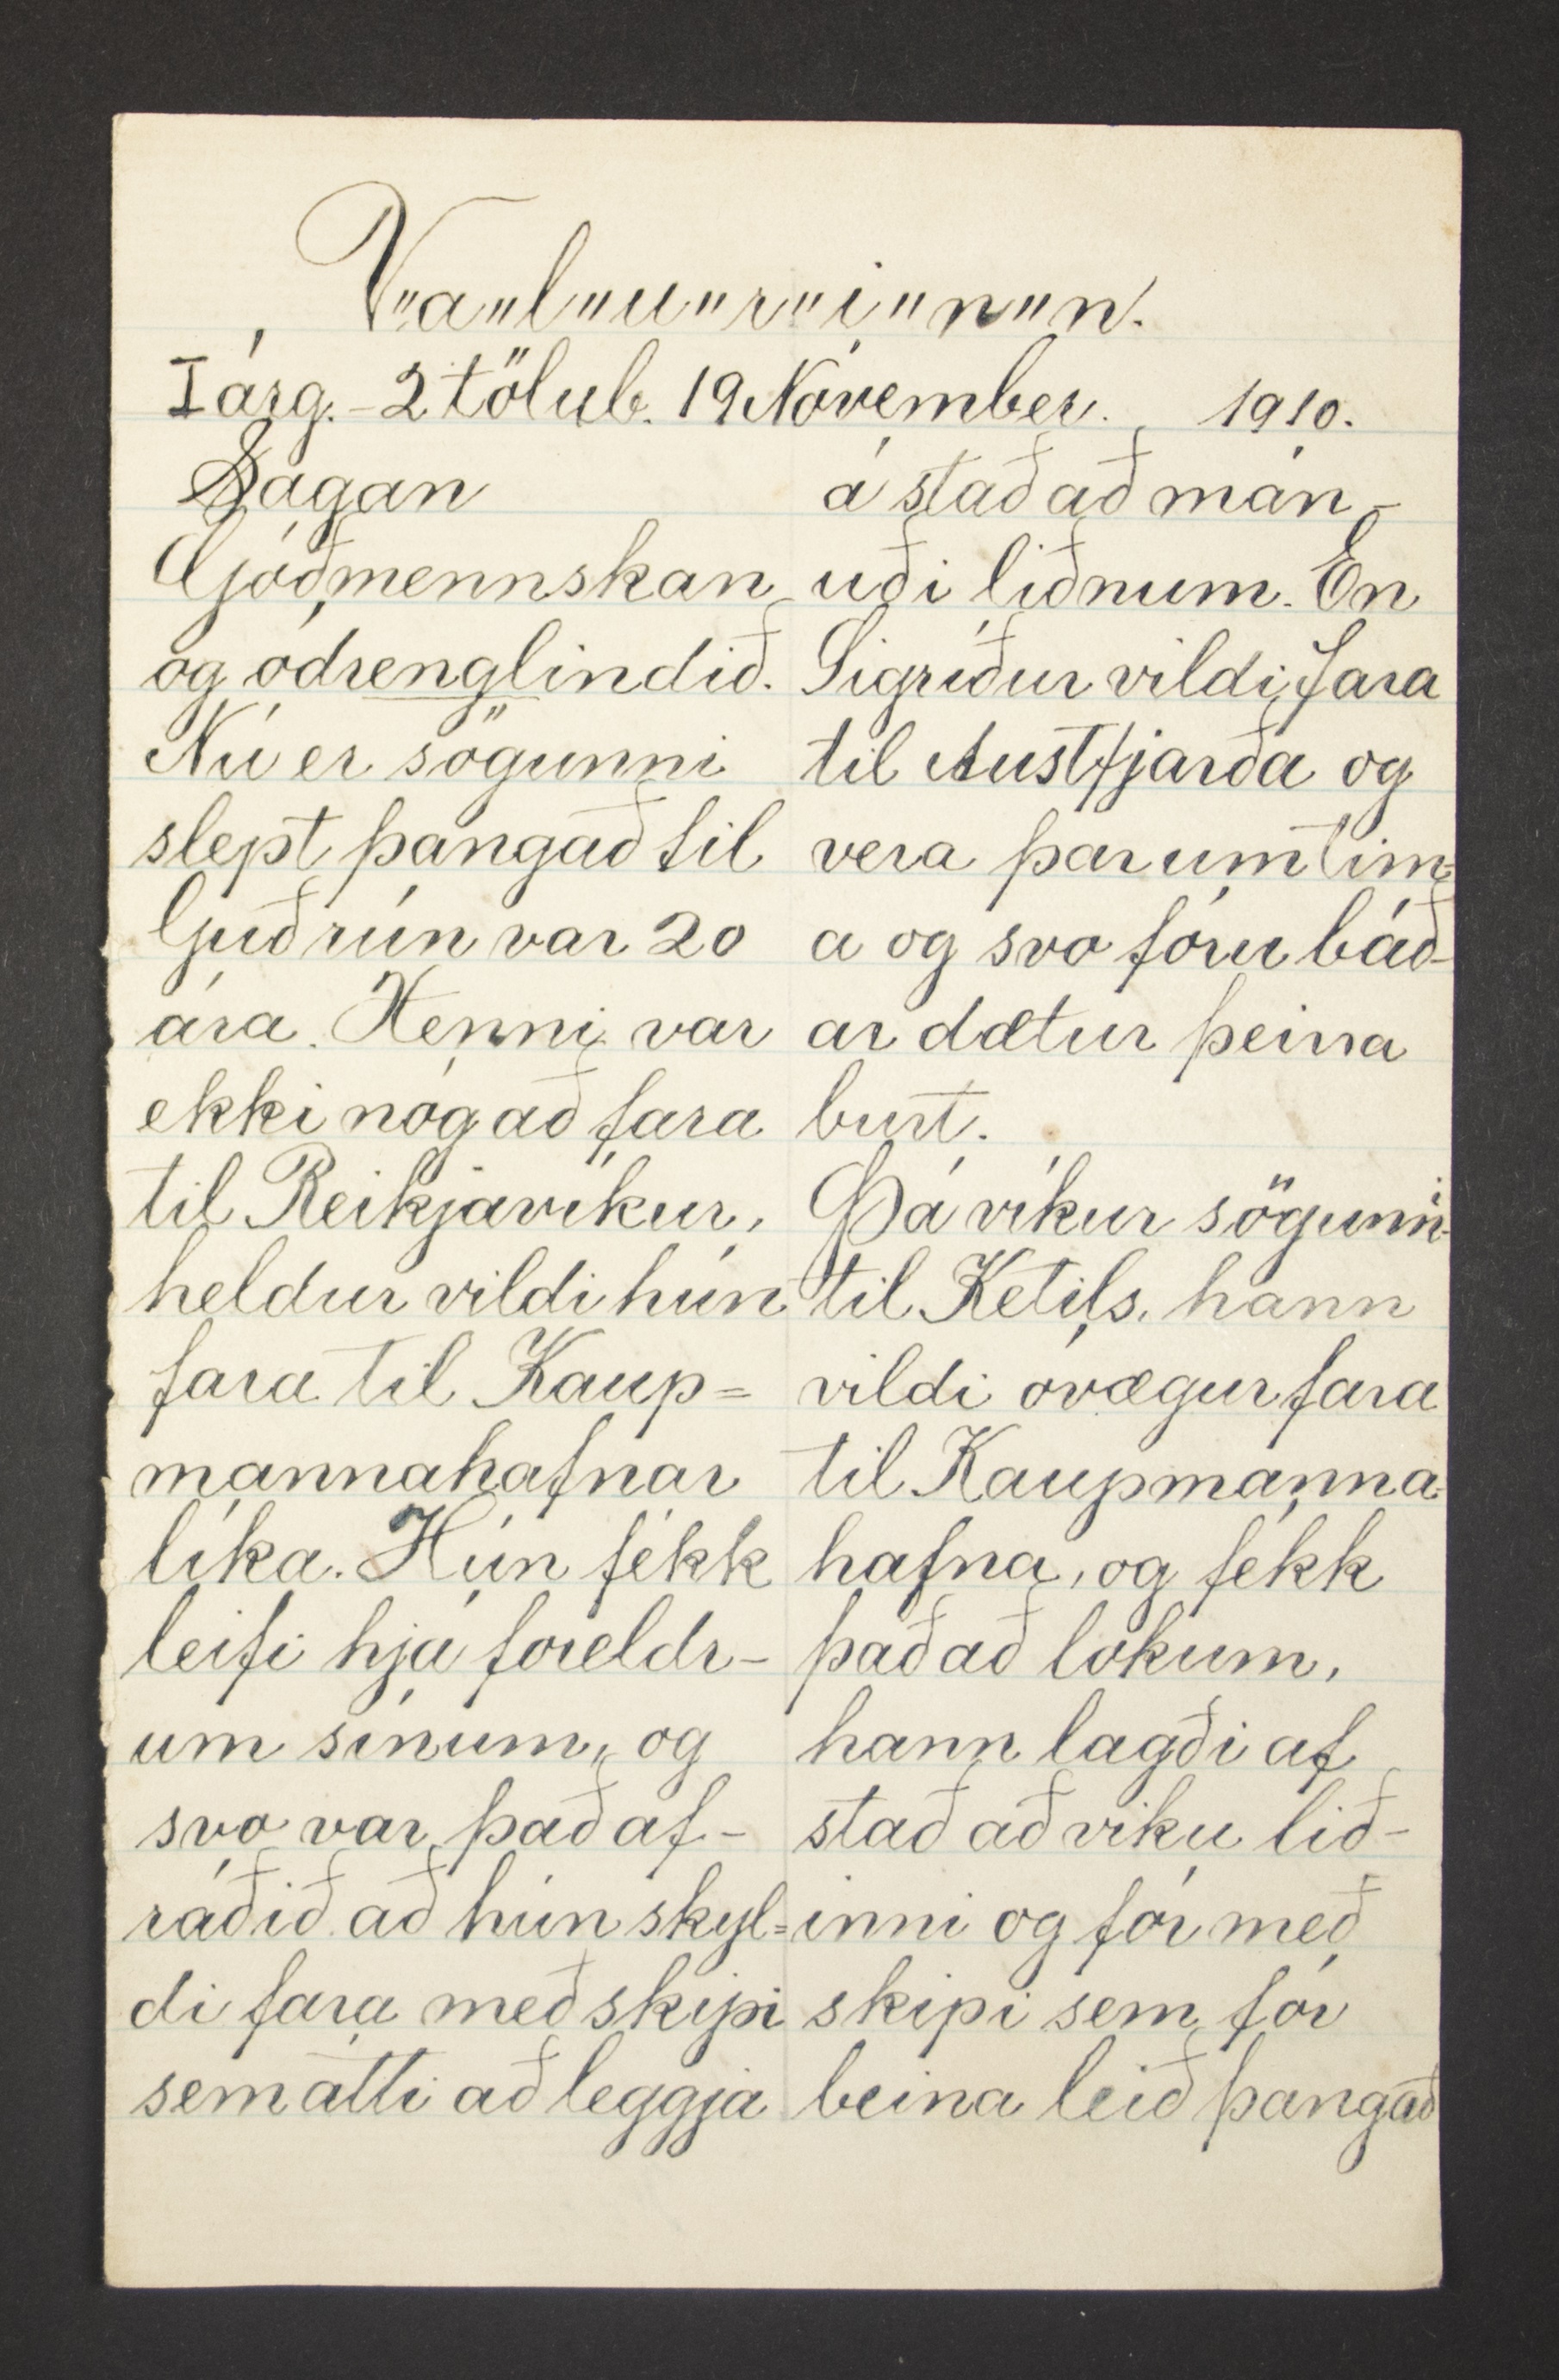 V"a"l"u"r"i"n"n.
I árg. - 2 tölub. 19 Nóvember. 1910.
Sagan
Góðmennskan
og ódrenglindið.
Nú er sögunni
slept þangað til
Guðrún var 20
ára. Henni var
ekki nóg að fara
til Reikjavíkur,
heldur vildi hún
fara til Kaup=
mannahafnar
líka. Hún fékk
leifi hjá foreldr-
um sínum, og
svo var það af-
ráðið að hún skyl=
di fara með skipi
sem átti að leggja
á stað að mán-
uði liðnum. En
Sigríður vildi fara
til Austfjarða og
vera þar um tím=
a og svo fóru báð-
ar dætur þeirra
burt.
Þá víkur sögunni
til Ketils, hann
vildi óvægur fara
til Kaupmanna-
hafna, og fékk
það að lokum,
hann lagði af
stað að viku lið-
inni og fór með
skipi sem fór
beina leið þangað